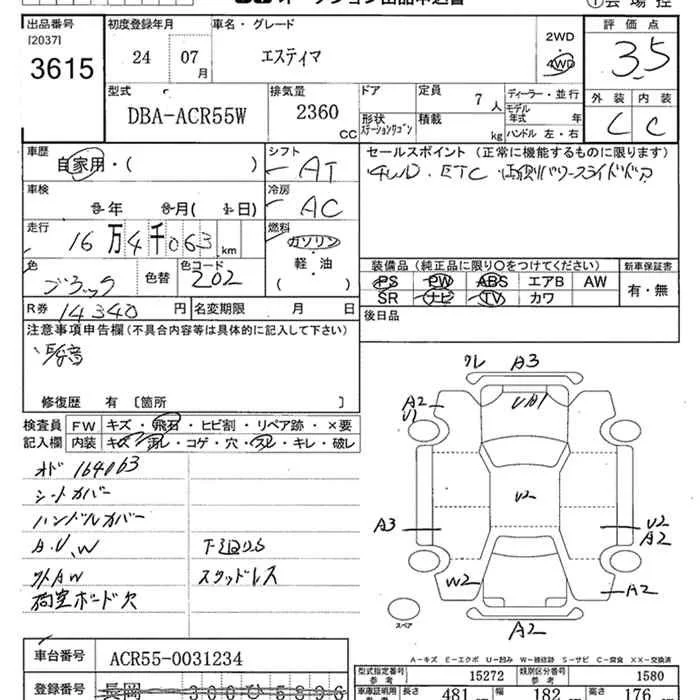 出品番号
[2037]
3615
初度登録年月
24 07月
車名・グレード
エスティマ
2WD
4WD
評価点
3.5
型式
DBA-ACR55W
排気量
2360
CC
ドア
形状
ステーションワゴン
定員
7人
積載
kg
ディーラー・並行
モデル
年式 年
ハンドル 左・右
外装 内装
C C
車歴
自家用・( )
シフト
AT
セールスポイント(正常に機能するものに限ります)
4WD・ETC・両側パワースライドドア
車検
年 月( 日)
冷房
AC
走行
16万4千063km
燃料
ガソリン
軽・油
( )
色
ブラック
色替
色コード
202
装備品(純正品に限り〇をつけてください)
新車保証書
PS PW ABS エアB AW
SR ナビ TV カワ
有・無
R券 14340円
名変期限 月 日
後日品
注意事項申告欄(不具合内容等は具体的に記入して下さい)
修復歴 有 [箇所 ]
検査員
記入欄
FW キズ・飛石・ヒビ割・リペア跡・×要
内装 キズ・汚レ・コゲ・穴・スレ・キレ・破レ
オド 164063
シートカバー
ハンドルカバー
A.U.W
外AW
荷室ボード欠
下廻りS
スタッドレス
ワレ A3
A2
U1
UA1
U2
A3
U2
A2
W2
A2
A2
スペア
A-キズ E-エクボ U-凹み W-補修跡 S-サビ C-腐食 XX-交換済
車台番号
ACR55-0031234
登録番号
長岡 300 5896
型式指定番号
参考
15272
類別区分番号
参考
1580
車庫証明用
長さ 481 幅 182 高さ 176